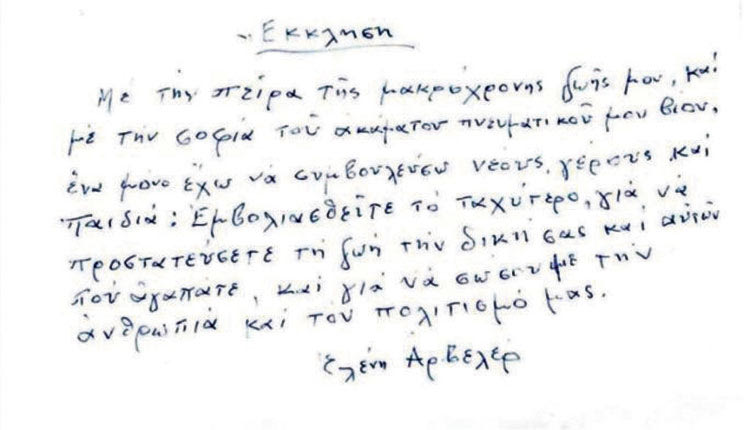 Εκκληση
Μέ τήν πείρα τῆς μακρόχρονης ζωῆς μου, καί
μέ τήν σοφία τοῦ ἀκάματου πνευματικοῦ μου βίου,
ἕνα μόνο ἔχω νά συμβουλεύσω νέους, γέρους καί
παιδιά: Ἐμβολιασθεῖτε τό ταχύτερο, γιά νά
προστατεύσετε τή ζωή τήν δική σας καί αὐτῶν
πού ἀγαπᾶτε, καί γιά νά σώσουμε τήν
ἀνθρωπιά καί τόν πολιτισμό μας.
Ἑλένη Ἀρβελέρ